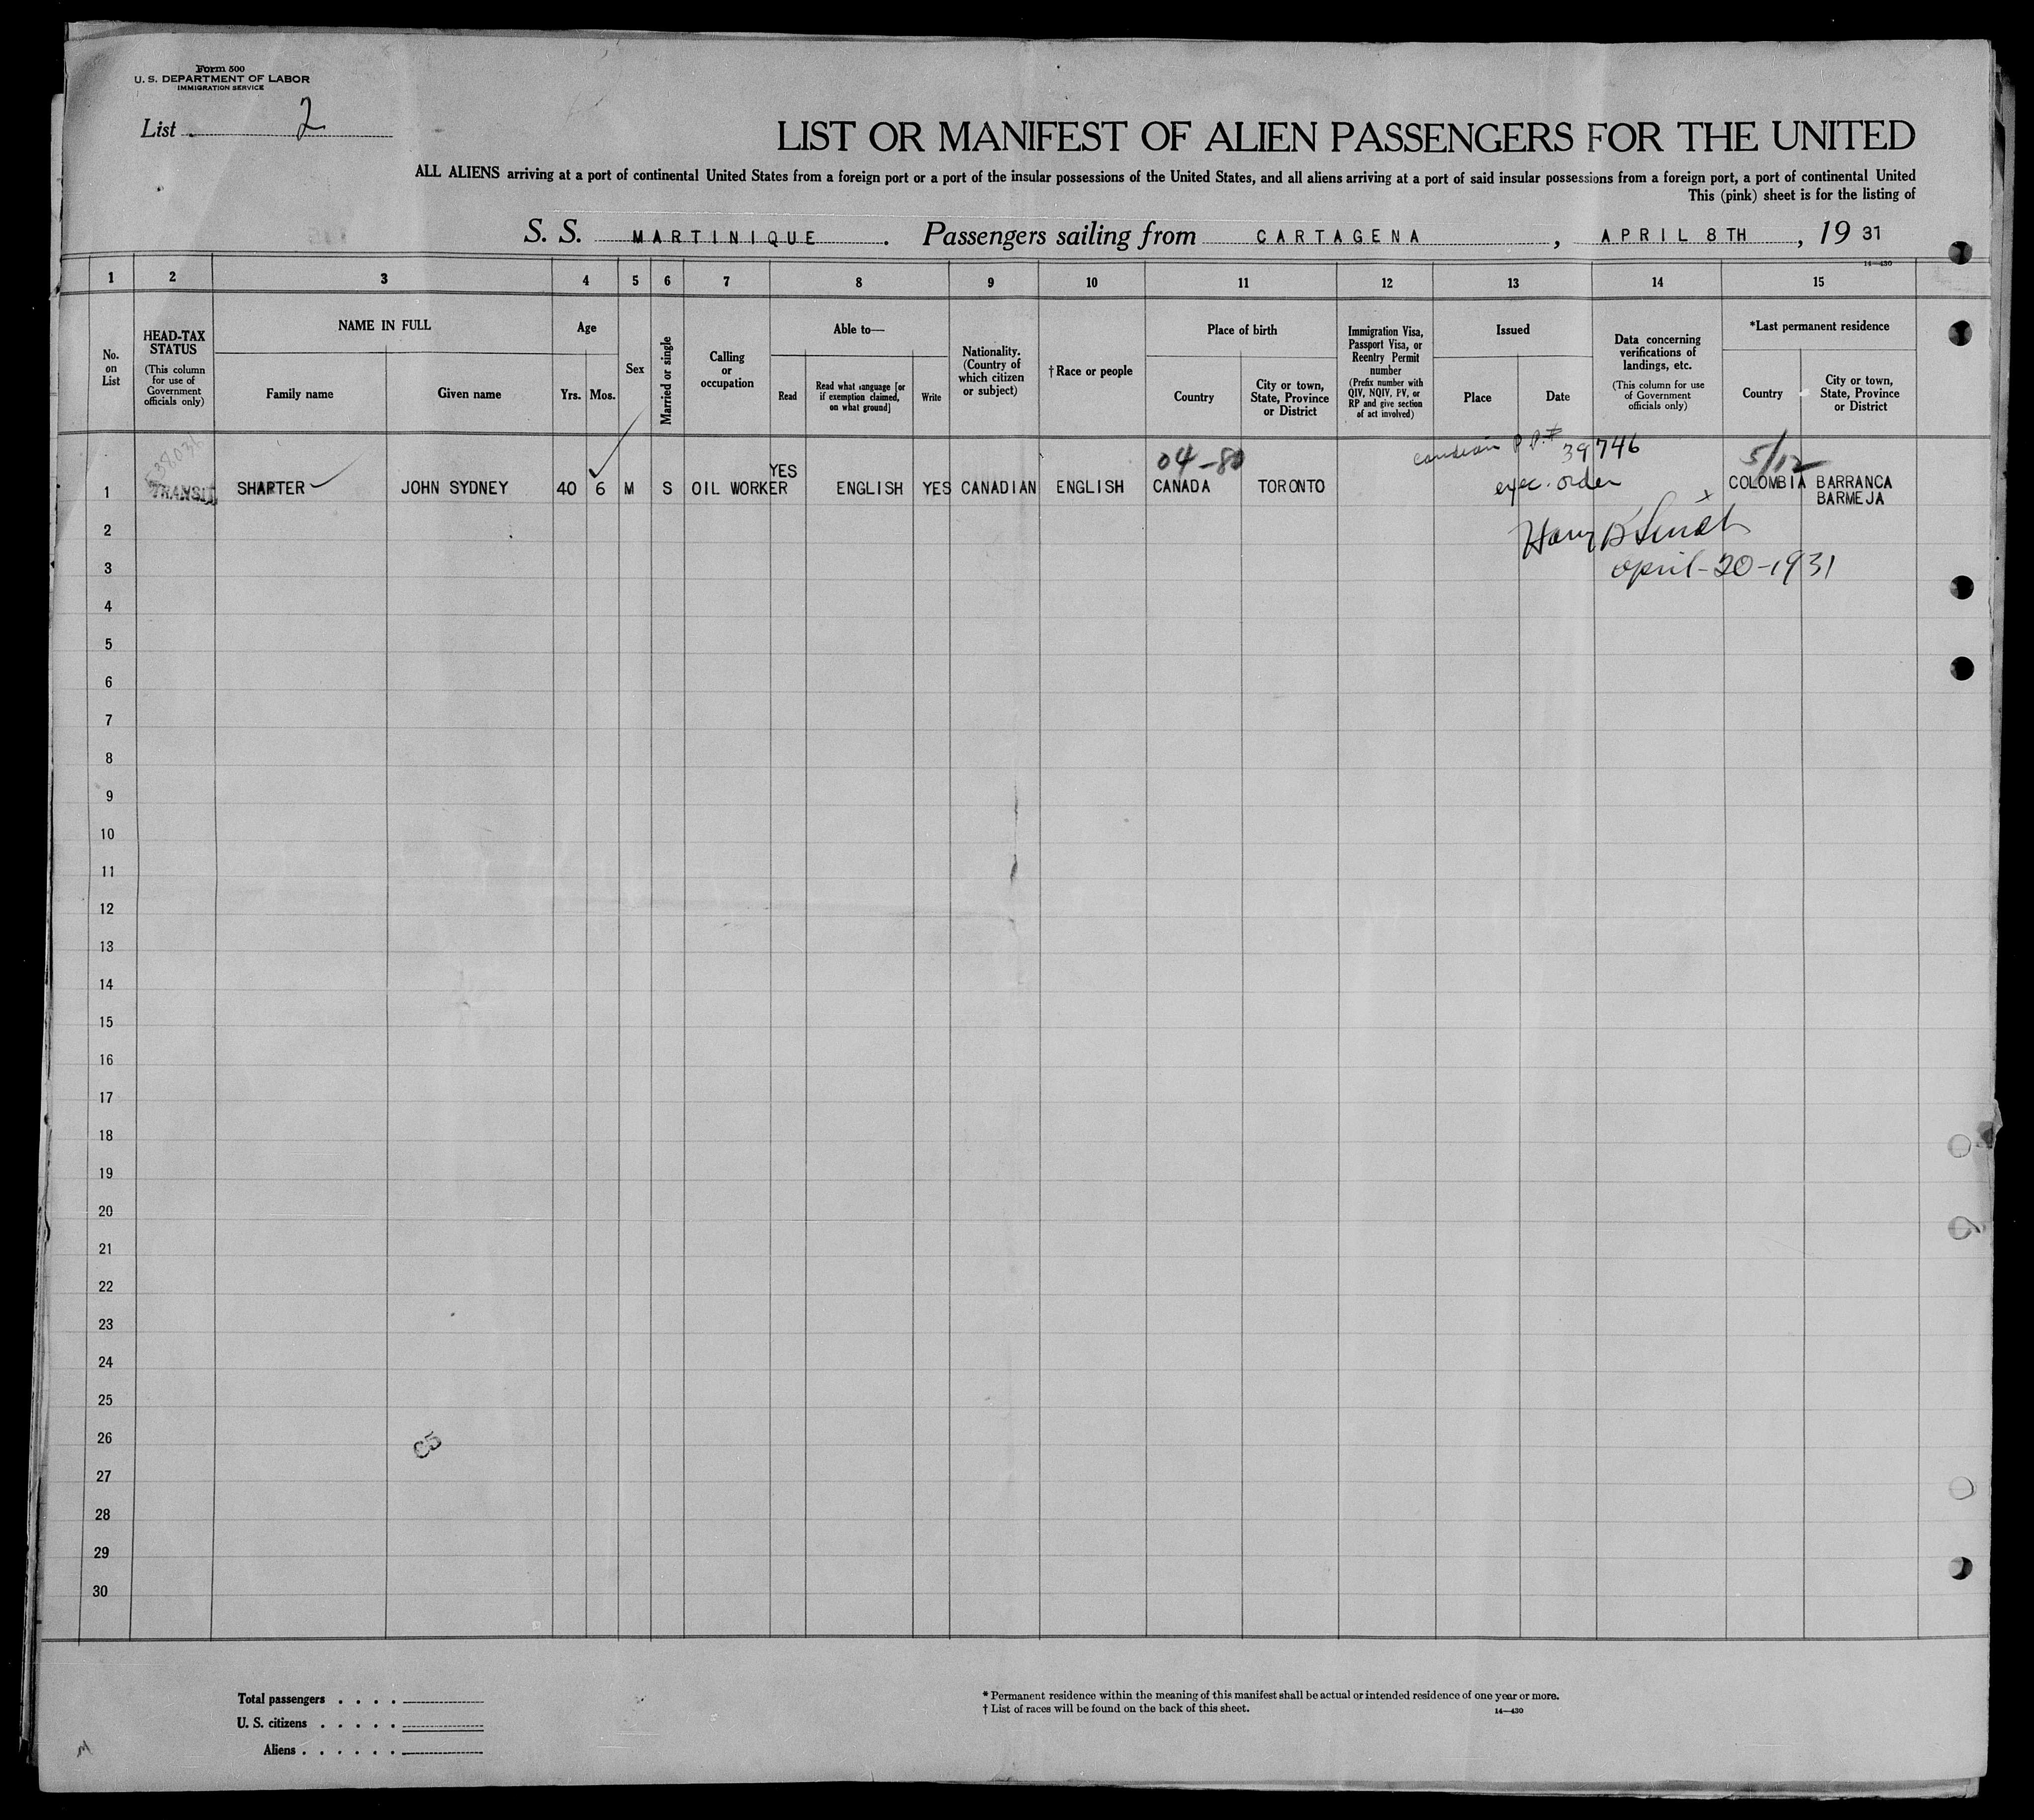 Form 500
U. S. DEPARTMENT OF LABOR
IMMIGRATION SERVICE
List 2
LIST OR MANIFEST OF ALIEN PASSENGERS FOR THE UNITED
ALL ALIENS arriving at a port of continental United States from a foreign port or a port of the insular possessions of the United States, and all aliens arriving at a port of said insular possessions from a foreign port, a port of continental United
This (pink) sheet is for the listing of
S. S. MARTINIQUE . Passengers sailing from CARTAGENA , APRIL 8TH , 19 31
14—430
1 2 3 4 5 6 7 8 9 10 11 12 13 14 15
No. on List
HEAD-TAX STATUS
(This column for use of Government officials only)
NAME IN FULL
Family name
Given name
Age
Yrs. Mos.
Sex
Married or single
Calling or occupation
Able to—
Read
Read what language [or if exemption claimed, on what ground]
Write
Nationality. (Country of which citizen or subject)
† Race or people
Place of birth
Country
City or town, State, Province or District
Immigration Visa, Passport Visa, or Reentry Permit number
(Prefix number with QIV, NQIV, PV, or RP and give section of act involved)
Issued
Place
Date
Data concerning verifications of landings, etc.
(This column for use of Government officials only)
*Last permanent residence
Country
City or town, State, Province or District
P.P.# 39746
04-80
5/12
1 TRANSIT SHARTER JOHN SYDNEY 40 6 M S OIL WORKER YES ENGLISH YES CANADIAN ENGLISH CANADA TORONTO exec. order COLOMBIA BARRANCA
BARMEJA
2
April-20-1931
3
4
5
6
7
8
9
10
11
12
13
14
15
16
17
18
19
20
21
22
23
24
25
26
27
28
29
30
C5
Total passengers . . . .
U. S. citizens . . . . .
Aliens . . . . . .
* Permanent residence within the meaning of this manifest shall be actual or intended residence of one year or more.
† List of races will be found on the back of this sheet.
14—430